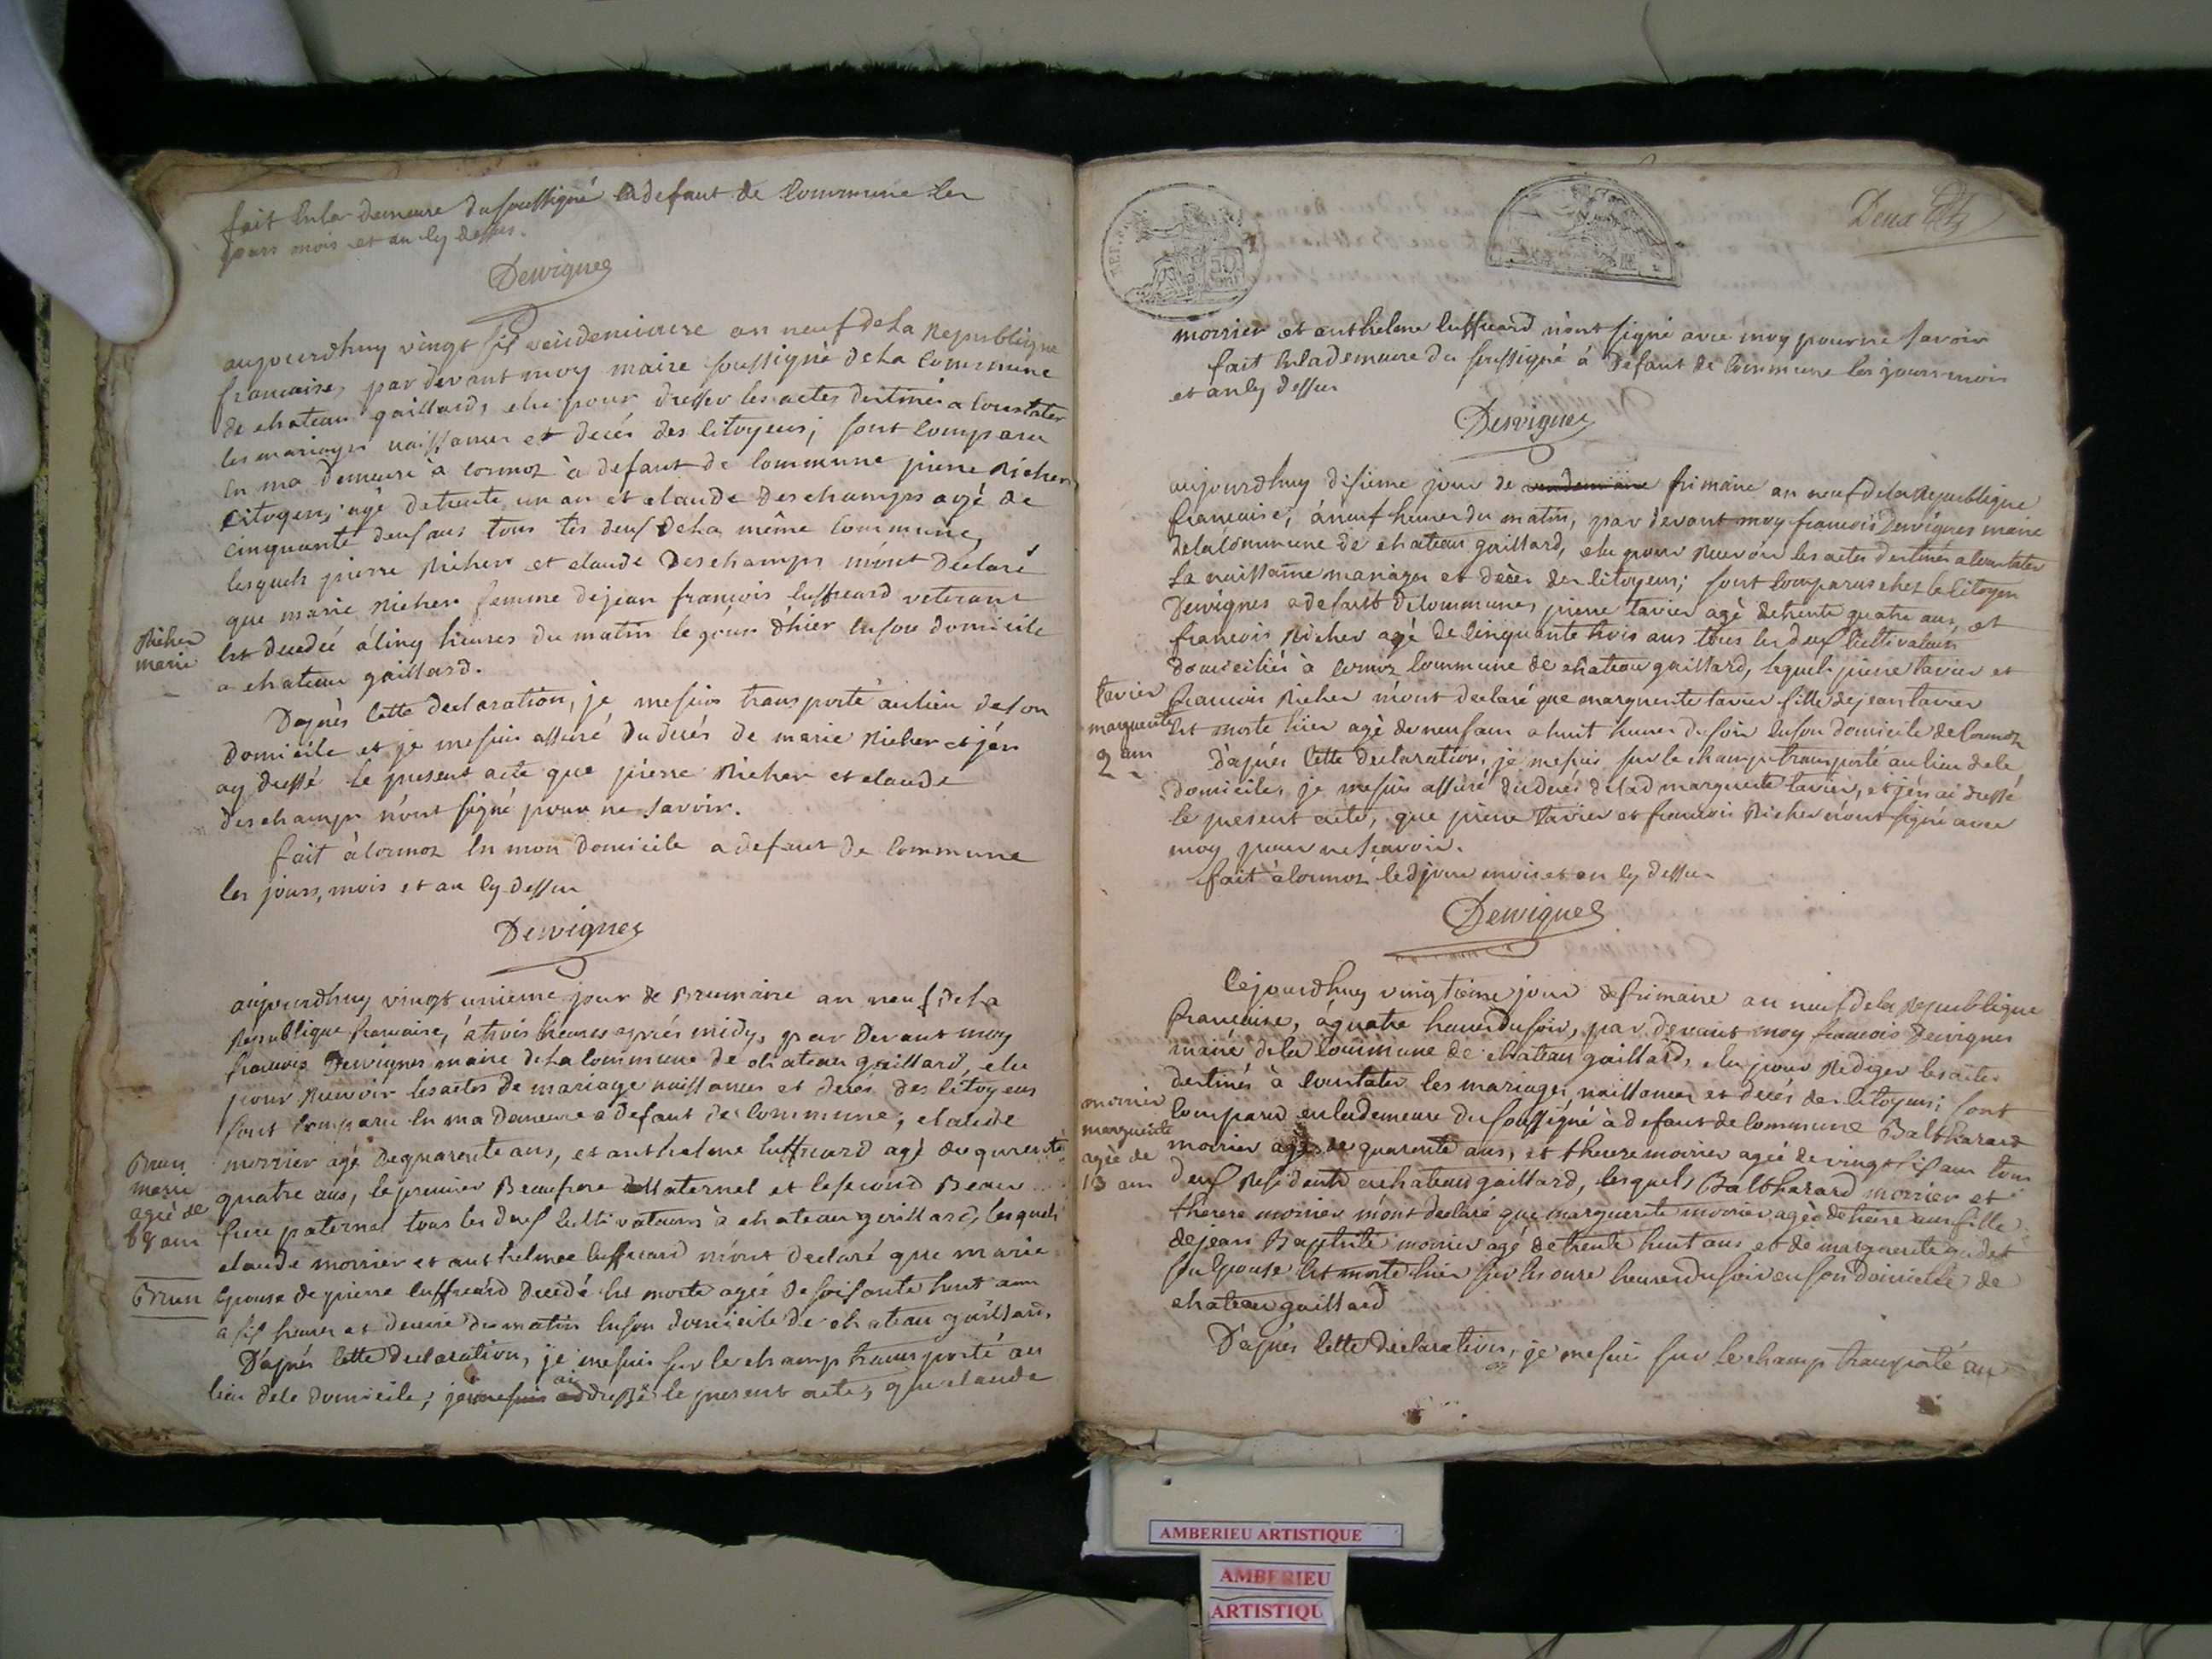 fait En la demeure du soussigné a defaut de Commune les
jours mois et an cy dessus.
Desvignes
aujourdhuy vingt six vendemiaire an neuf de La Republique
francaise, par devant moy maire soussigné de La Commune
de chateau gaillard, elu pour dresser les actes destinés a Constater
les mariages naissances et decés des Citoyens; sont Comparu
En ma demeure à Cormoz à defaut de Commune pierre Richer
Citoyen, agé de trente un an et claude Deschamps agé de
Cinquante deux ans tous les deux de La même Commune,
lesquels pierre Richer et claude Deschamps m'ont Déclaré
que marie Richer femme de jean francois Cuffieard veterant
Est decedée à Cinq heures du matin le jour d'hier En son domicile
a chateau gaillard.
Richer
marie
D'après Cette declaration, je me suis transporté au lieu de son
domicile et je me suis assuré du decés de marie Richer et j'en
ay dressé le present acte que pierre Richer et claude
deschamps n'ont signé pour ne savoir.
fait à Cormoz En mon domicile a defaut de Commune
les jours, mois et an cy dessus
Desvignes
aujourdhuy vingt unieme jour de Brumaire an neuf de La
Republique francaise, à trois heures après midy, par Devant moy
francois Desvignes maire de La Commune de chateau gaillard, elu
pour Recevoir les actes de mariage naissances et decés des Citoyens
sont Comparu En ma Demeure a defaut de Commune; claude
morrier agé de quarente ans, et anthelme Cuffieard agé de quarente
quatre ans, le premier Beaufrere Maternel et le second Beau
frere paternel tous les deux Cultivateurs à chateau gaillard, lesquels
claude morrier et anthelme Cuffieard m'ont declaré que marie
Brun
marie
agée de
68 ans
Brun
Epouse de pierre Cuffieard Decedé Est morte agée de soixante huit ans
a six heures et demie du matin En son domicile de chateau gaillard.
D'après Cette declaration, je me suis sur le champ transporté au
lieu de le domicile, je me suis ai dressé le present acte, que claude
REP. FRA
50
Deux
morrier et anthelme Cuffieard n'ont signé avec moy pour ne savoir
fait En la demeure du soussigné à defaut de Commune les jours mois
et an cy dessus
Desvignes
aujourdhuy dixieme jour de vendemiaire frimaire an neuf de la Republique
francaise, à neuf heures du matin, par devant moy francois Desvignes maire
de la Commune de chateau gaillard, elu pour Recevoir les actes destinés a Constater
La naissance mariages et decès des Citoyens; sont Comparus chez le Citoyen
Desvignes a defaut de Commune, pierre tavier agé de trente quatre ans, et
francois Richer agé de Cinquante trois ans tous les deux Cultivateurs
domiciliés à Cormoz Commune de chateau gaillard, lequels pierre tavier et
francois Richer m'ont declaré que marguerite tavier fille de jean tavier
Est morte hier agé de neuf ans a huit heures du soir En son domicile de Cormoz
tavier
marguerite
9 ans
D'après Cette Declaration, je me suis sur le champ transporté au lieu de le
domicile, je me suis assuré du decés de lad marguerite tavier, et j'en ai dressé
le present acte, que pierre tavier et francois Richer n'ont signé avec
moy pour ne scavoir.
fait à Cormoz led jour mois et an cy dessus
Desvignes
Cejourdhuy vingtieme jour de frimaire an neuf de la Republique
francaise, à quatre heures du soir, par devant moy francois Desvignes
maire de la Commune de chateau gaillard, elu pour Rediger les actes
destinés à Constater les mariages, naissances et decés des Citoyens; sont
Comparu en la demeure du soussigné à defaut de Commune Balthazard
morrier agé de quarente ans, et therese morrier agée de vingt six ans tous
deux Residents a chateau gaillard, lesquels Balthazard morrier et
therese morrier m'ont declaré que marguerite morrier agée de treize ans fille
de jean Baptiste morrier agé de trente huit ans et de marguerite gudet
son Epouse Est morte hier sur les onze heures du soir en son domicile de
chateau gaillard
morrier
marguerite
agée de
13 ans
D'après Cette declaration, je me suis sur le champ transporté au
AMBERIEU ARTISTIQUE
AMBERIEU
ARTISTIQU